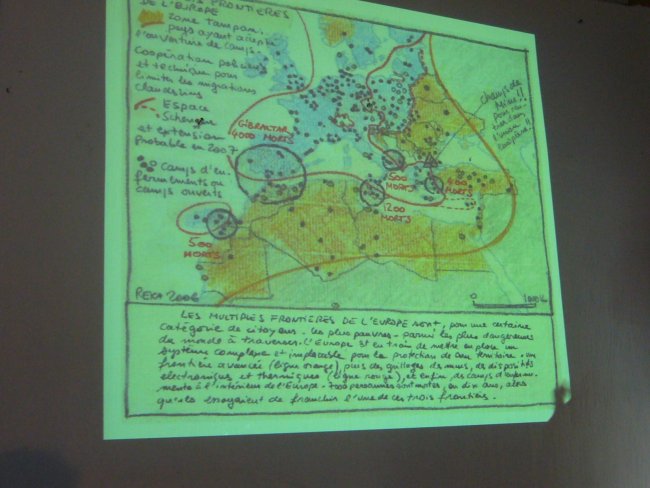 FRONTIÈRES
DE L'EUROPE
zone tampon.
pays ayant accepté
l'ouverture de camps
Coopération policière
et technique pour
limiter les migrations
clandestines
Espace
Schengen
et extension
Probable en 2007
Camps d'en-
fermements ou
camps ouverts
GIBRALTAR
4000 MORTS
500
MORTS
400
MORTS
1200
MORTS
500
MORTS
Champs de
Mines !!
pour
REKA 2006
LES MULTIPLES FRONTIÈRES DE L'EUROPE SONT, pour une certaine
catégorie de citoyens - les plus pauvres - parmi les plus dangereuses
du monde à traverser. L'Europe est en train de mettre en place un
système complexe et implacable pour la protection de son territoire : une
frontière avancée (ligne orange), puis des grillages, des murs, des dispositifs
électroniques et thermiques (ligne rouge), et enfin, des camps d'enferme-
ments à l'intérieur de l'Europe - 7000 personnes sont mortes, en dix ans, alors
qu'elles essayaient de franchir l'une de ces trois frontières.